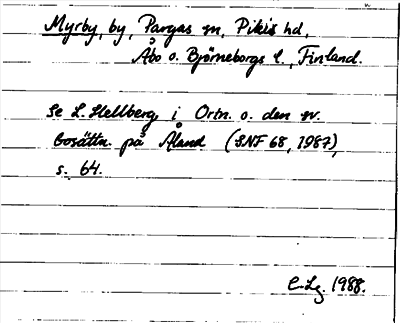 Myrby, by, Pargas sn, Pikis hd,
Åbo o. Björneborgs l., Finland.
Se L. Hellberg, i Ortn. o. den sv.
bosättn. på Åland (SNF 68, 1987),
s. 64.
C-Lg. 1988.